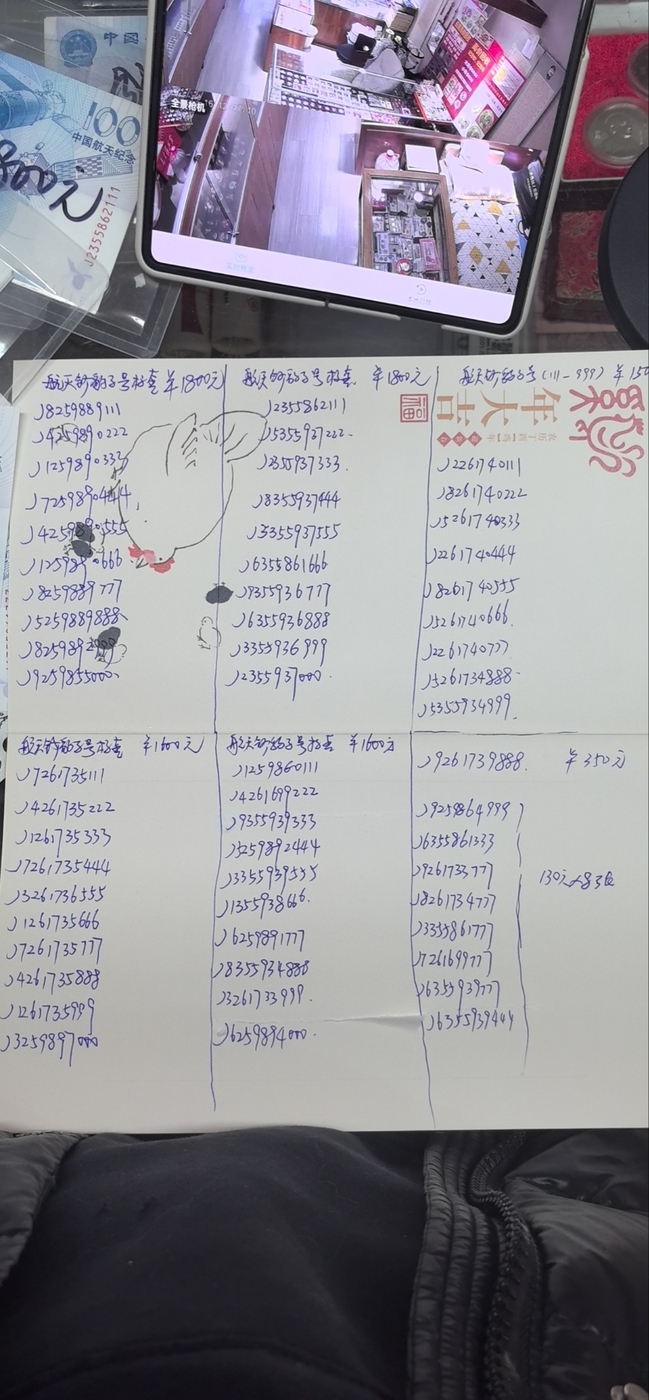 中国
100
中国航天纪念
800元
J2355862111
全景枪机
航天钞豹子号标套 ¥1800元
J8259889111
J4259890222
J1259890333
J7259890444
J4259890555
J1259890666
J8259889777
J5259889888
J9259855000
航天钞豹子号标套 ¥1800元
J2355862111
J5355927222
J2355937333
J8355937444
J3355937555
J6355861666
J9355936777
J6355936888
J3355936999
J2355937000
福
年大吉
航天钞豹子号(111-999) ¥150
J2261740111
J8261740222
J5261740333
J2261740444
J8261740555
J5261740666
J2261740777
J5261734888
J5355934999
航天钞豹子号标套 ¥1600元
J7261735111
J4261735222
J1261735333
J7261735444
J3261736555
J1261735666
J7261735777
J4261735888
J1261735999
J3259897000
航天钞豹子号标套 ¥1600元
J1259860111
J4261699222
J9355939333
J5259892444
J3355939555
J1355938666
J6259891777
J8355934888
J3261733999
J6259894000
J9261739888 ¥350元
J9259864999
J6355861333
J9261733777
J8261734777
J3355861777
J7261699777
J6355939777
J6355939444
130元×8张